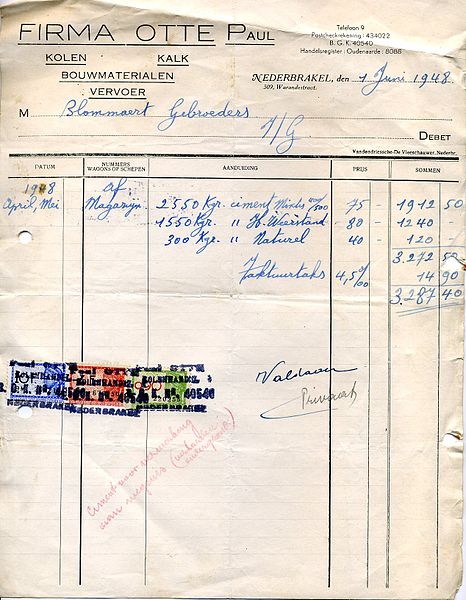 FIRMA OTTE PAUL
Telefoon 9
Postcheckrekening : 434022
B. G. K. 40540
Handelsregister : Oudenaarde : 8088
KOLEN KALK
BOUWMATERIALEN
VERVOER
NEDERBRAKEL, den 1 Juni 1948
309, Warandestraat.
M Blommaert Gebroeders
I/G
DEBET
Vandendriessche-De Vleerschauwer, Nederbr.
DATUM NUMMERS WAGONS OF SCHEPEN AANDUIDING PRIJS SOMMEN
1948 af
April, Mei Magazijn 2550 Kgr. ciment 75 - 1912 50
1550 Kgr. " H. Weerstand 80 - 1240 -
300 Kgr. " Naturel 40 - 120 -
3.272 50
Faktuurtaks 4,5 0/00 14 90
3.287 40
KOLENHANDEL
B. G. K. Nr. 40540
NEDERBRAKEL
Voldaan
Ciment voor